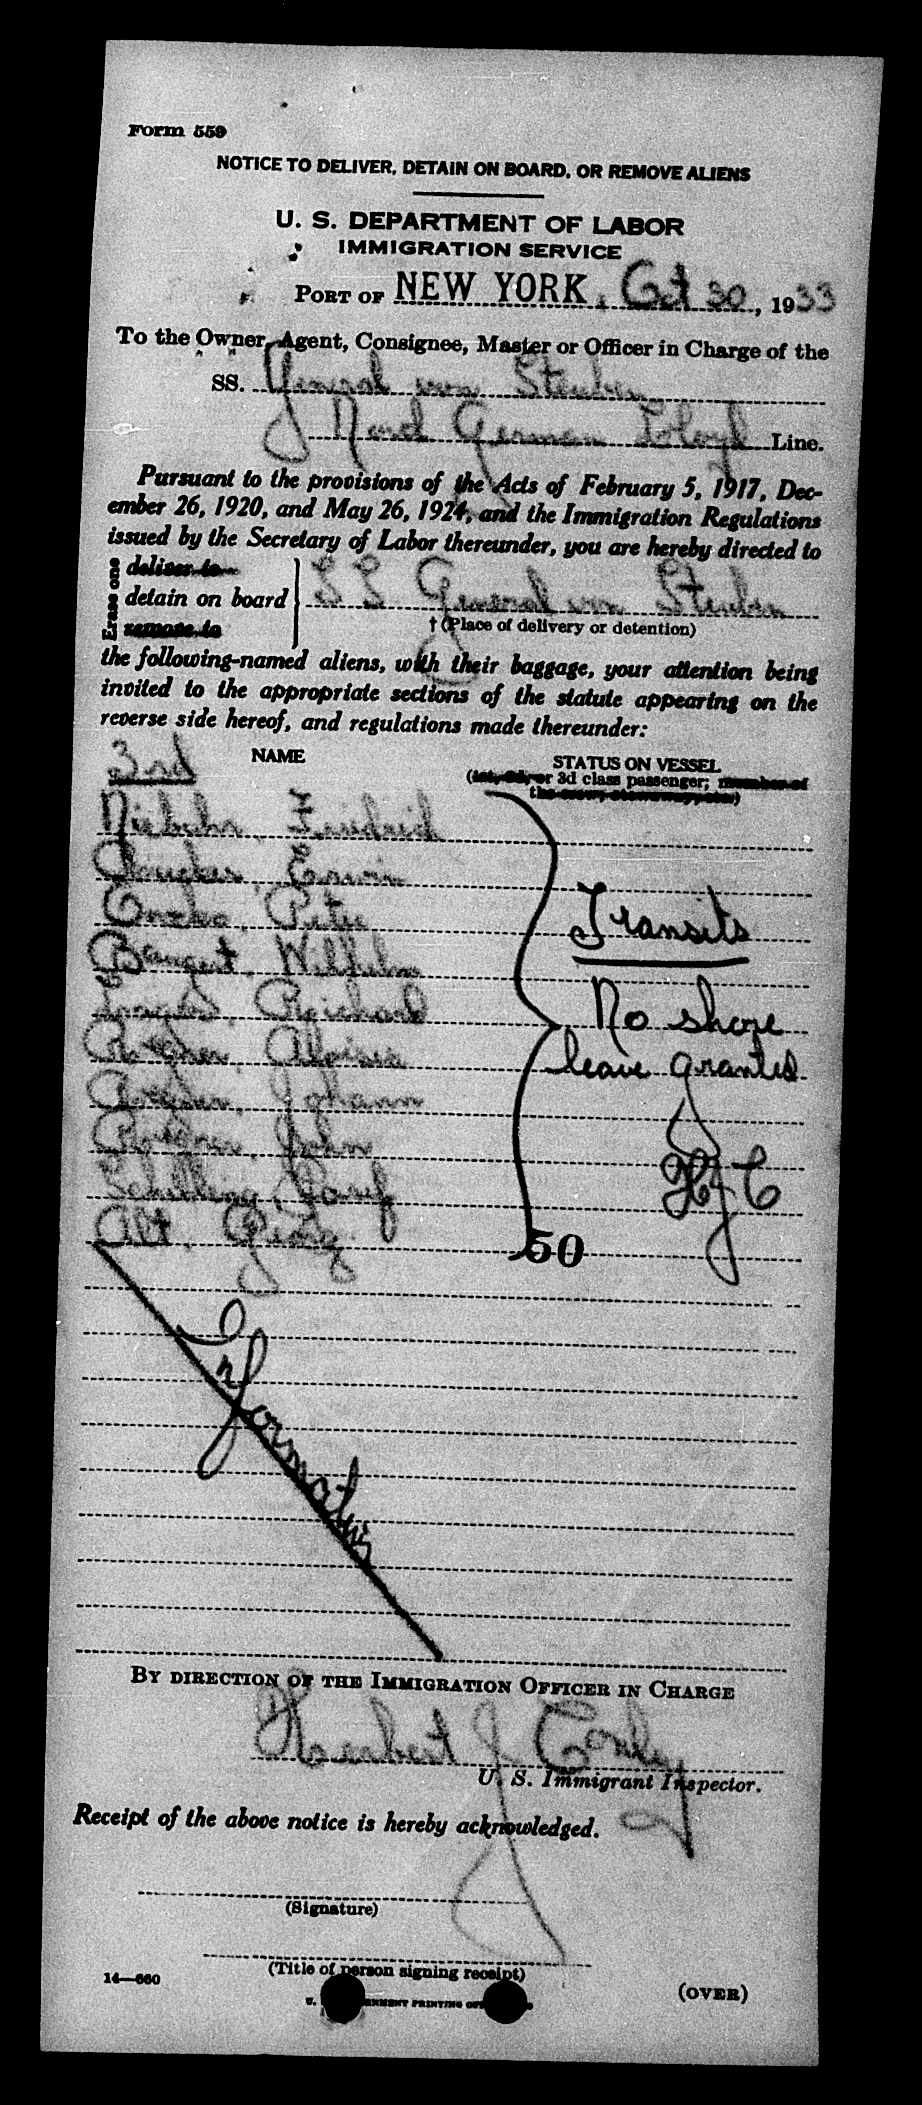 Form 559
NOTICE TO DELIVER, DETAIN ON BOARD, OR REMOVE ALIENS
U. S. DEPARTMENT OF LABOR
IMMIGRATION SERVICE
PORT OF NEW YORK, Oct 30, 1933
To the Owner, Agent, Consignee, Master or Officer in Charge of the
SS. General von Steuben
Nord German Lloyd Line.
Pursuant to the provisions of the Acts of February 5, 1917, Dec-
ember 26, 1920, and May 26, 1924, and the Immigration Regulations
issued by the Secretary of Labor thereunder, you are hereby directed to
Erase one
deliver to
detain on board } SS General von Steuben
remove to
† (Place of delivery or detention)
the following-named aliens, with their baggage, your attention being
invited to the appropriate sections of the statute appearing on the
reverse side hereof, and regulations made thereunder:
3rd NAME STATUS ON VESSEL
(1st, 2d, or 3d class passenger; member of
the crew, stowaway, etc.)
Friedrich
Erwin
Peter
Transits
Bangert, Wilhelm
Reichard
No shore
leave granted
Johann
John
HJC
Schilling, Josef
Alt, Georg
50
By direction of the Immigration Officer in Charge
Herbert J Conley
U. S. Immigrant Inspector.
Receipt of the above notice is hereby acknowledged.
(Signature)
(Title of person signing receipt)
14—660
(OVER)